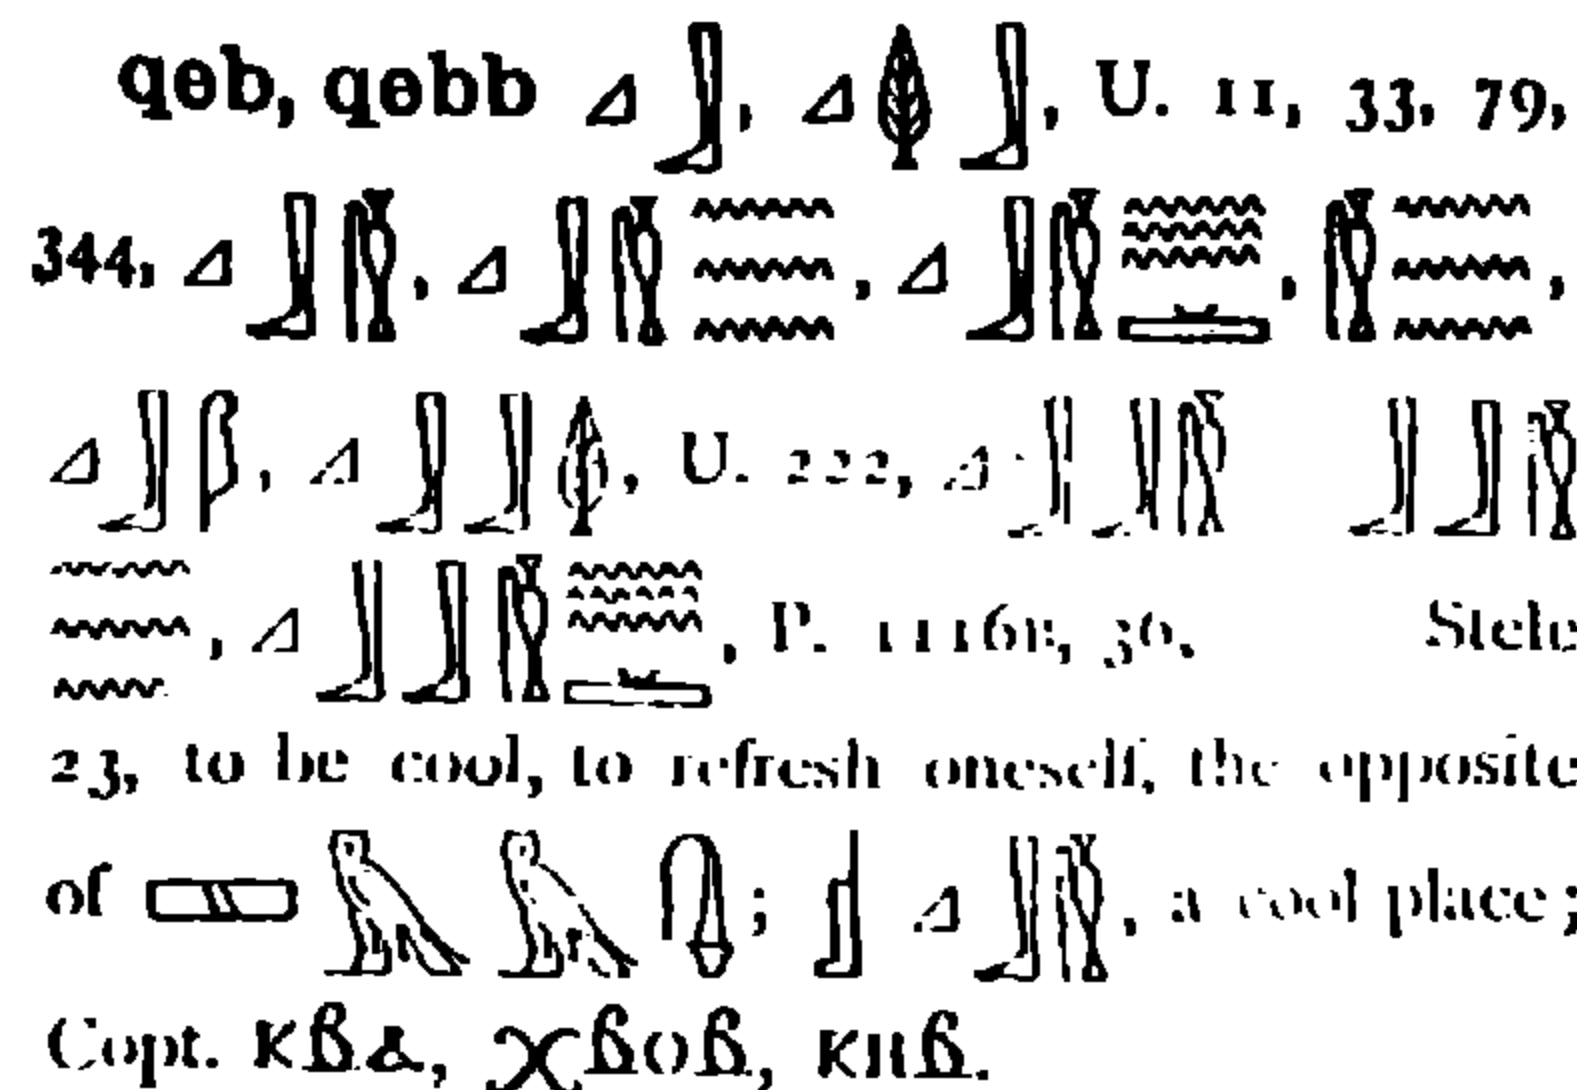 qeb, qebb 𓈎𓃀, 𓈎𓆭𓃀, U. 11, 33, 79,
344, 𓈎𓃀𓏂, 𓈎𓃀𓏂𓈗, 𓈎𓃀𓏂𓈗𓈇, 𓏂𓈗,
𓈎𓃀, 𓈎𓃀𓃀𓆭, U. 222, 𓈎𓃀𓃀𓏂 𓃀𓃀𓏂
𓈗, 𓈎𓃀𓃀𓏂𓈗𓈇, P. 1116B, 30, Stele
23, to be cool, to refresh oneself, the opposite
of 𓈚𓅓𓅓𓊮; 𓊨𓈎𓃀𓏂, a cool place;
Copt. ⲕⲃⲁ, ⲭⲃⲟⲃ, ⲕⲏⲃ.